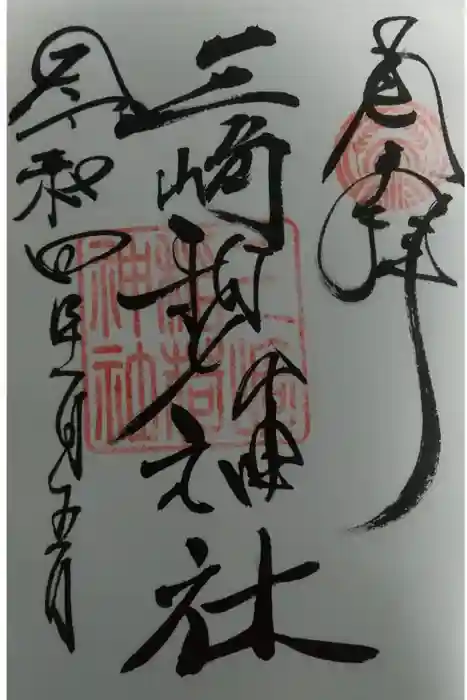 奉拝
三崎稲荷神社
令和四年一月五日
三崎
稲荷
神社